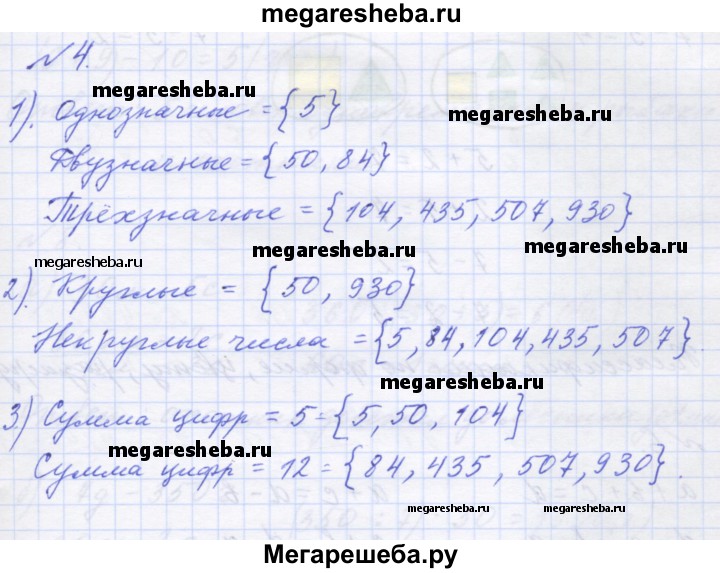 megaresheba.ru
№4.
megaresheba.ru
1). Однозначные = {5}
megaresheba.ru
Двузначные = {50, 84}
Трёхзначные = {104, 435, 507, 930}
megaresheba.ru
megaresheba.ru
megaresheba.ru
2). Круглые = {50, 930}
Некруглые числа = {5, 84, 104, 435, 507}.
megaresheba.ru
3) Сумма цифр = 5 = {5, 50, 104}
megaresheba.ru
Сумма цифр = 12 = {84, 435, 507, 930}.
megaresheba.ru
megaresheba.ru
Мегарешеба.ру